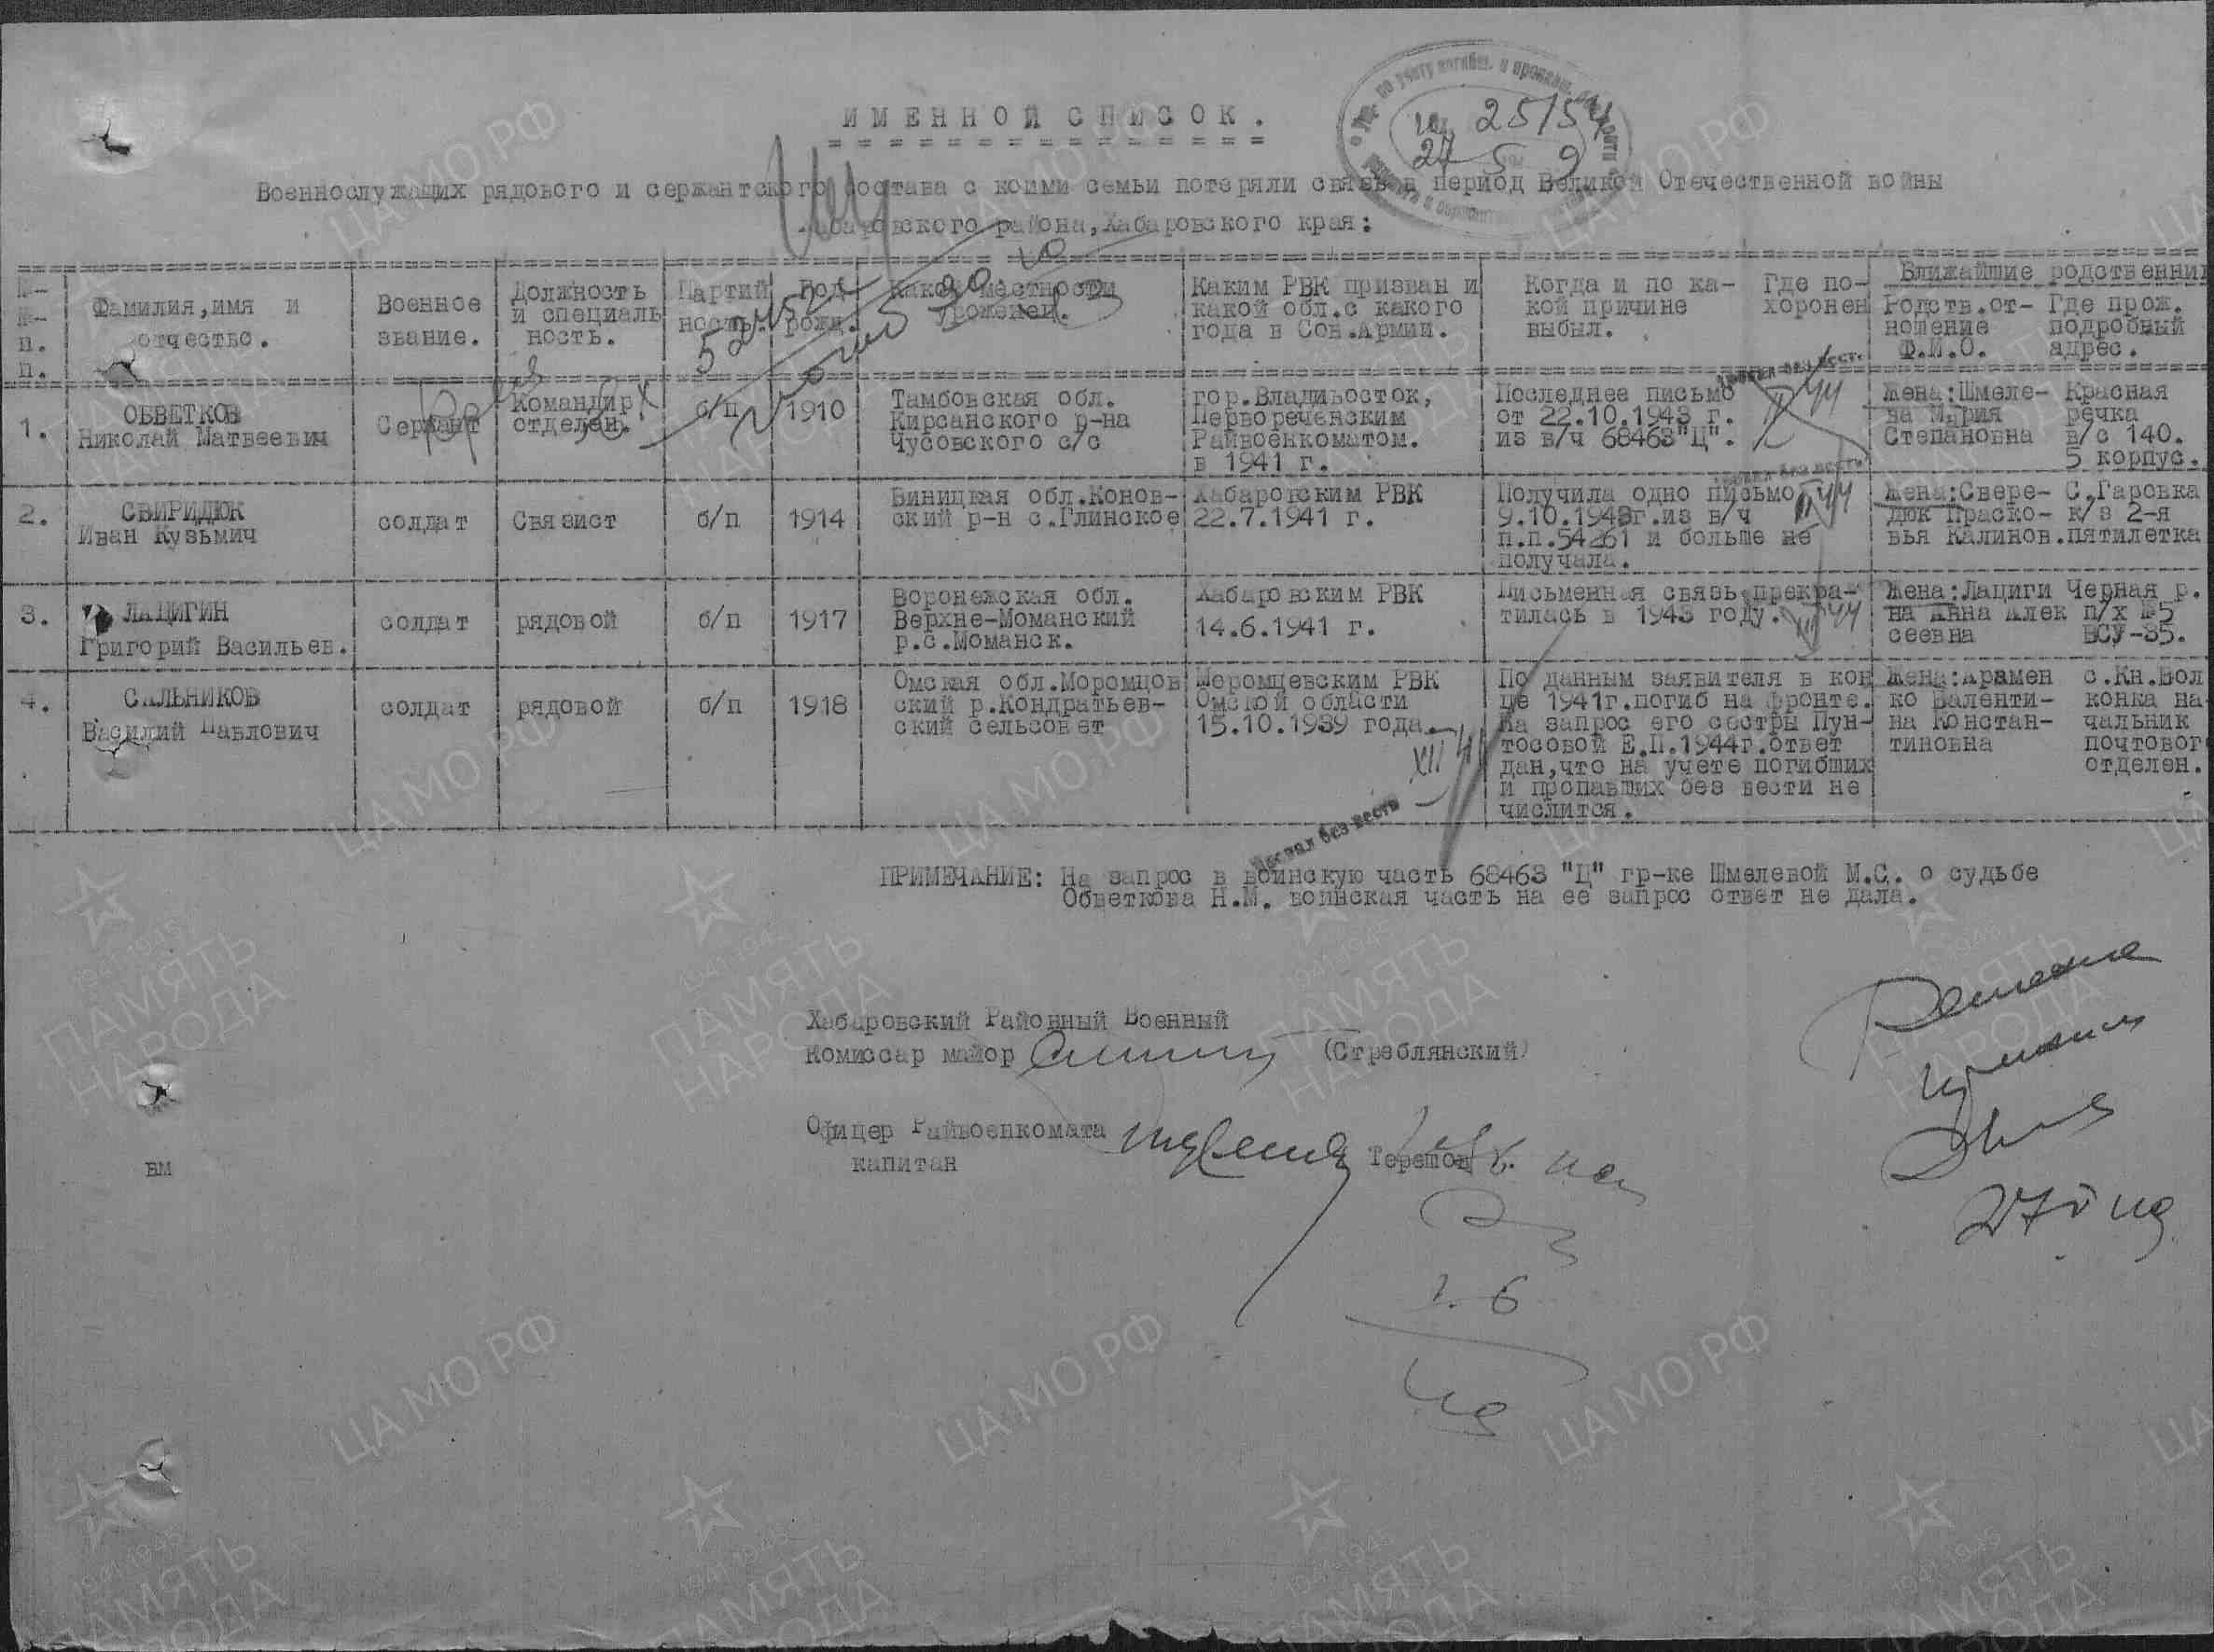 ИМЕННОЙ СПИСОК.
Военнослужащих рядового и сержантского состава с коими семьи потеряли связь в период Великой Отечественной войны
Хабаровского района, Хабаровского края:
№-№- п.п.
Фамилия, имя и отчество.
Военное звание.
Должность и специальность.
Партийность.
Год рожд.
Какой местности уроженец.
Каким РВК призван и какой обл. с какого года в Сов. Армии.
Когда и по какой причине выбыл.
Где похоронен
Ближайшие родственник
Родств. отношение Ф.И.О.
Где прож. подробный адрес.
1.
ОБВЕТКОВ
Николай Матвеевич
Сержант
Командир
отделен.
б/п
1910
Тамбовская обл.
Кирсанского р-на
Чусовского с/с
гор. Владивосток,
Первореченским
Райвоенкоматом.
в 1941 г.
Последнее письмо
от 22.10.1943 г.
из в/ч 68463 "Ц".
Жена: Шмеле-
ва Мария
Степановна
Красная
речка
в/с 140.
5 корпус.
2.
СВИРИДЮК
Иван Кузьмич
солдат
Связист
б/п
1914
Виницкая обл. Конов-
ский р-н с. Глинское
Хабаровским РВК
22.7.1941 г.
Получила одно письмо
9.10.1943г. из в/ч
п.п. 54261 и больше не
получала.
Жена: Свере-
дюк Праско-
вья Калинов.
С. Гаровка
к/з 2-я
пятилетка
3.
ЛАЦИГИН
Григорий Васильев.
солдат
рядовой
б/п
1917
Воронежская обл.
Верхне-Моманский
р. с. Моманск.
Хабаровским РВК
14.6.1941 г.
Письменная связь прекра-
тилась в 1943 году.
Жена: Лациги
на Анна Алек
сеевна
Черная р.
п/х №5
ВСУ-85.
4.
САЛЬНИКОВ
Василий Павлович
солдат
рядовой
б/п
1918
Омская обл. Моромцов
ский р. Кондратьев-
ский сельсовет
Меромцевским РВК
Омской области
15.10.1939 года.
По данным заявителя в кон
це 1941г. погиб на фронте.
На запрос его сестры Пун-
тосовой Е.П. 1944г. ответ
дан, что на учете погибших
и пропавших без вести не
числится.
Жена: Арамен
ко Валенти-
на Констан-
тиновна
с. Кн. Вол
конка на-
чальник
почтовог
отделен.
Пропал без вести
ПРИМЕЧАНИЕ: На запрос в воинскую часть 68463 "Ц" гр-ке Шмелевой М.С. о судьбе
Обветкова Н.М. воинская часть на ее запрос ответ не дала.
Хабаровский Районный Военный
Комиссар майор (Стреблянский)
Офицер Райвоенкомата
капитан
Терешов
вм
1.6
ЦА МО РФ
1941-1945
ПАМЯТЬ
НАРОДА